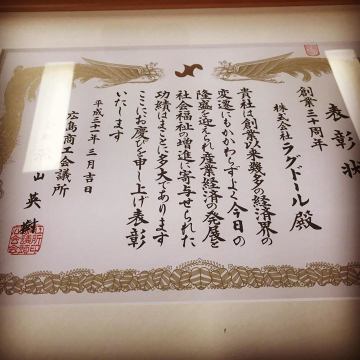 表彰状
創業三十周年
株式会社 ラグドール 殿
貴社は創業以来幾多の経済界の
変遷にもかかわらずよく今日の
隆盛を迎えられ産業経済の発展と
社会福祉の増進に寄与せられた
功績はまことに多大であります
ここにお慶びを申し上げ表彰
いたします
平成三十一年三月吉日
広島商工会議所
山英樹